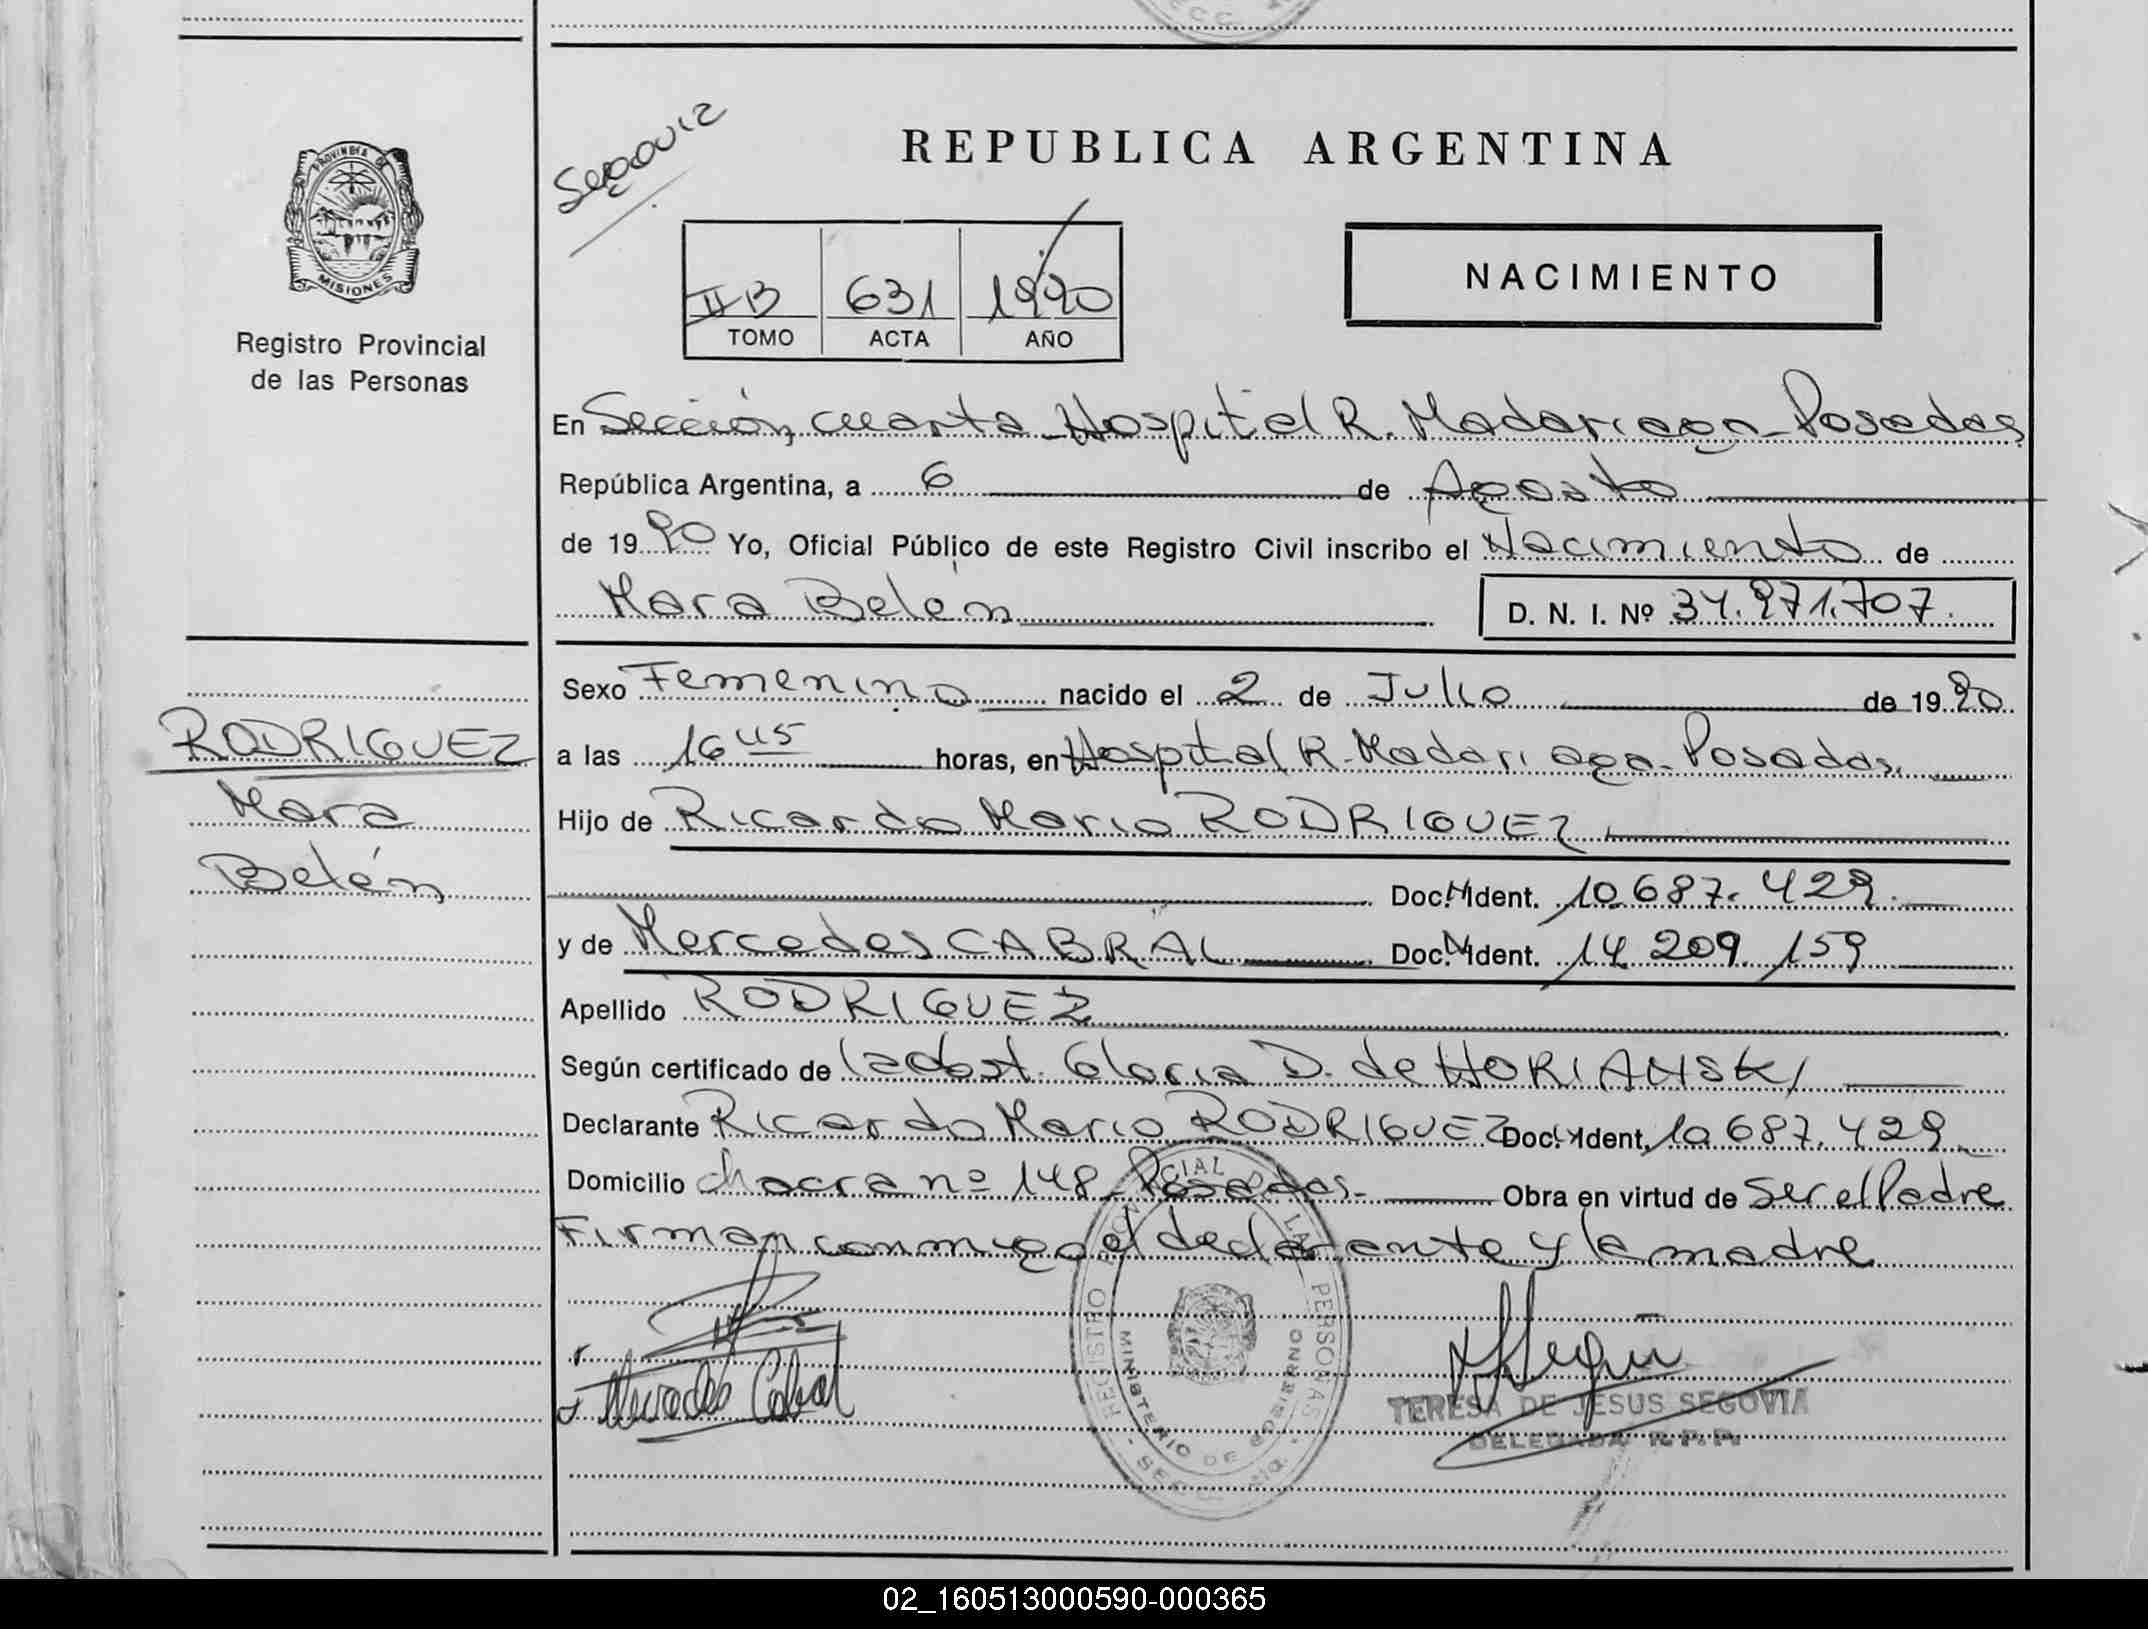 Segovia
REPUBLICA ARGENTINA
PROVINCIA DE
MISIONES
Registro Provincial
de las Personas
II B 631 1990
TOMO ACTA AÑO
NACIMIENTO
En Sección cuarta Hospital R. Madariaga - Posadas
República Argentina, a 6 de Agosto
de 1990 Yo, Oficial Público de este Registro Civil inscribo el Nacimiento de
Mara Belén D. N. I. Nº 34.971.707.
Sexo Femenino nacido el 2 de Julio de 1990
RODRIGUEZ
Mara
Belén
a las 16 45 horas, en Hospital R. Madariaga - Posadas.
Hijo de Ricardo Mario RODRIGUEZ
Doc. N Ident. 10.687.429.
y de Mercedes CABRAL Doc. N Ident. 14 209 159
Apellido RODRIGUEZ
Según certificado de la obst. Gloria D. de HORIANSKI
Declarante Ricardo Mario RODRIGUEZ Doc. N Ident. 10 687.429
Domicilio chacra nº 148 - Posadas. Obra en virtud de ser el Padre
Firman conmigo el declarante y la madre
REGISTRO PROVINCIAL DE LAS PERSONAS
MINISTERIO DE GOBIERNO
Mercedes Cabral
TERESA DE JESUS SEGOVIA
DELEGADA R.P.P.
02_160513000590-000365